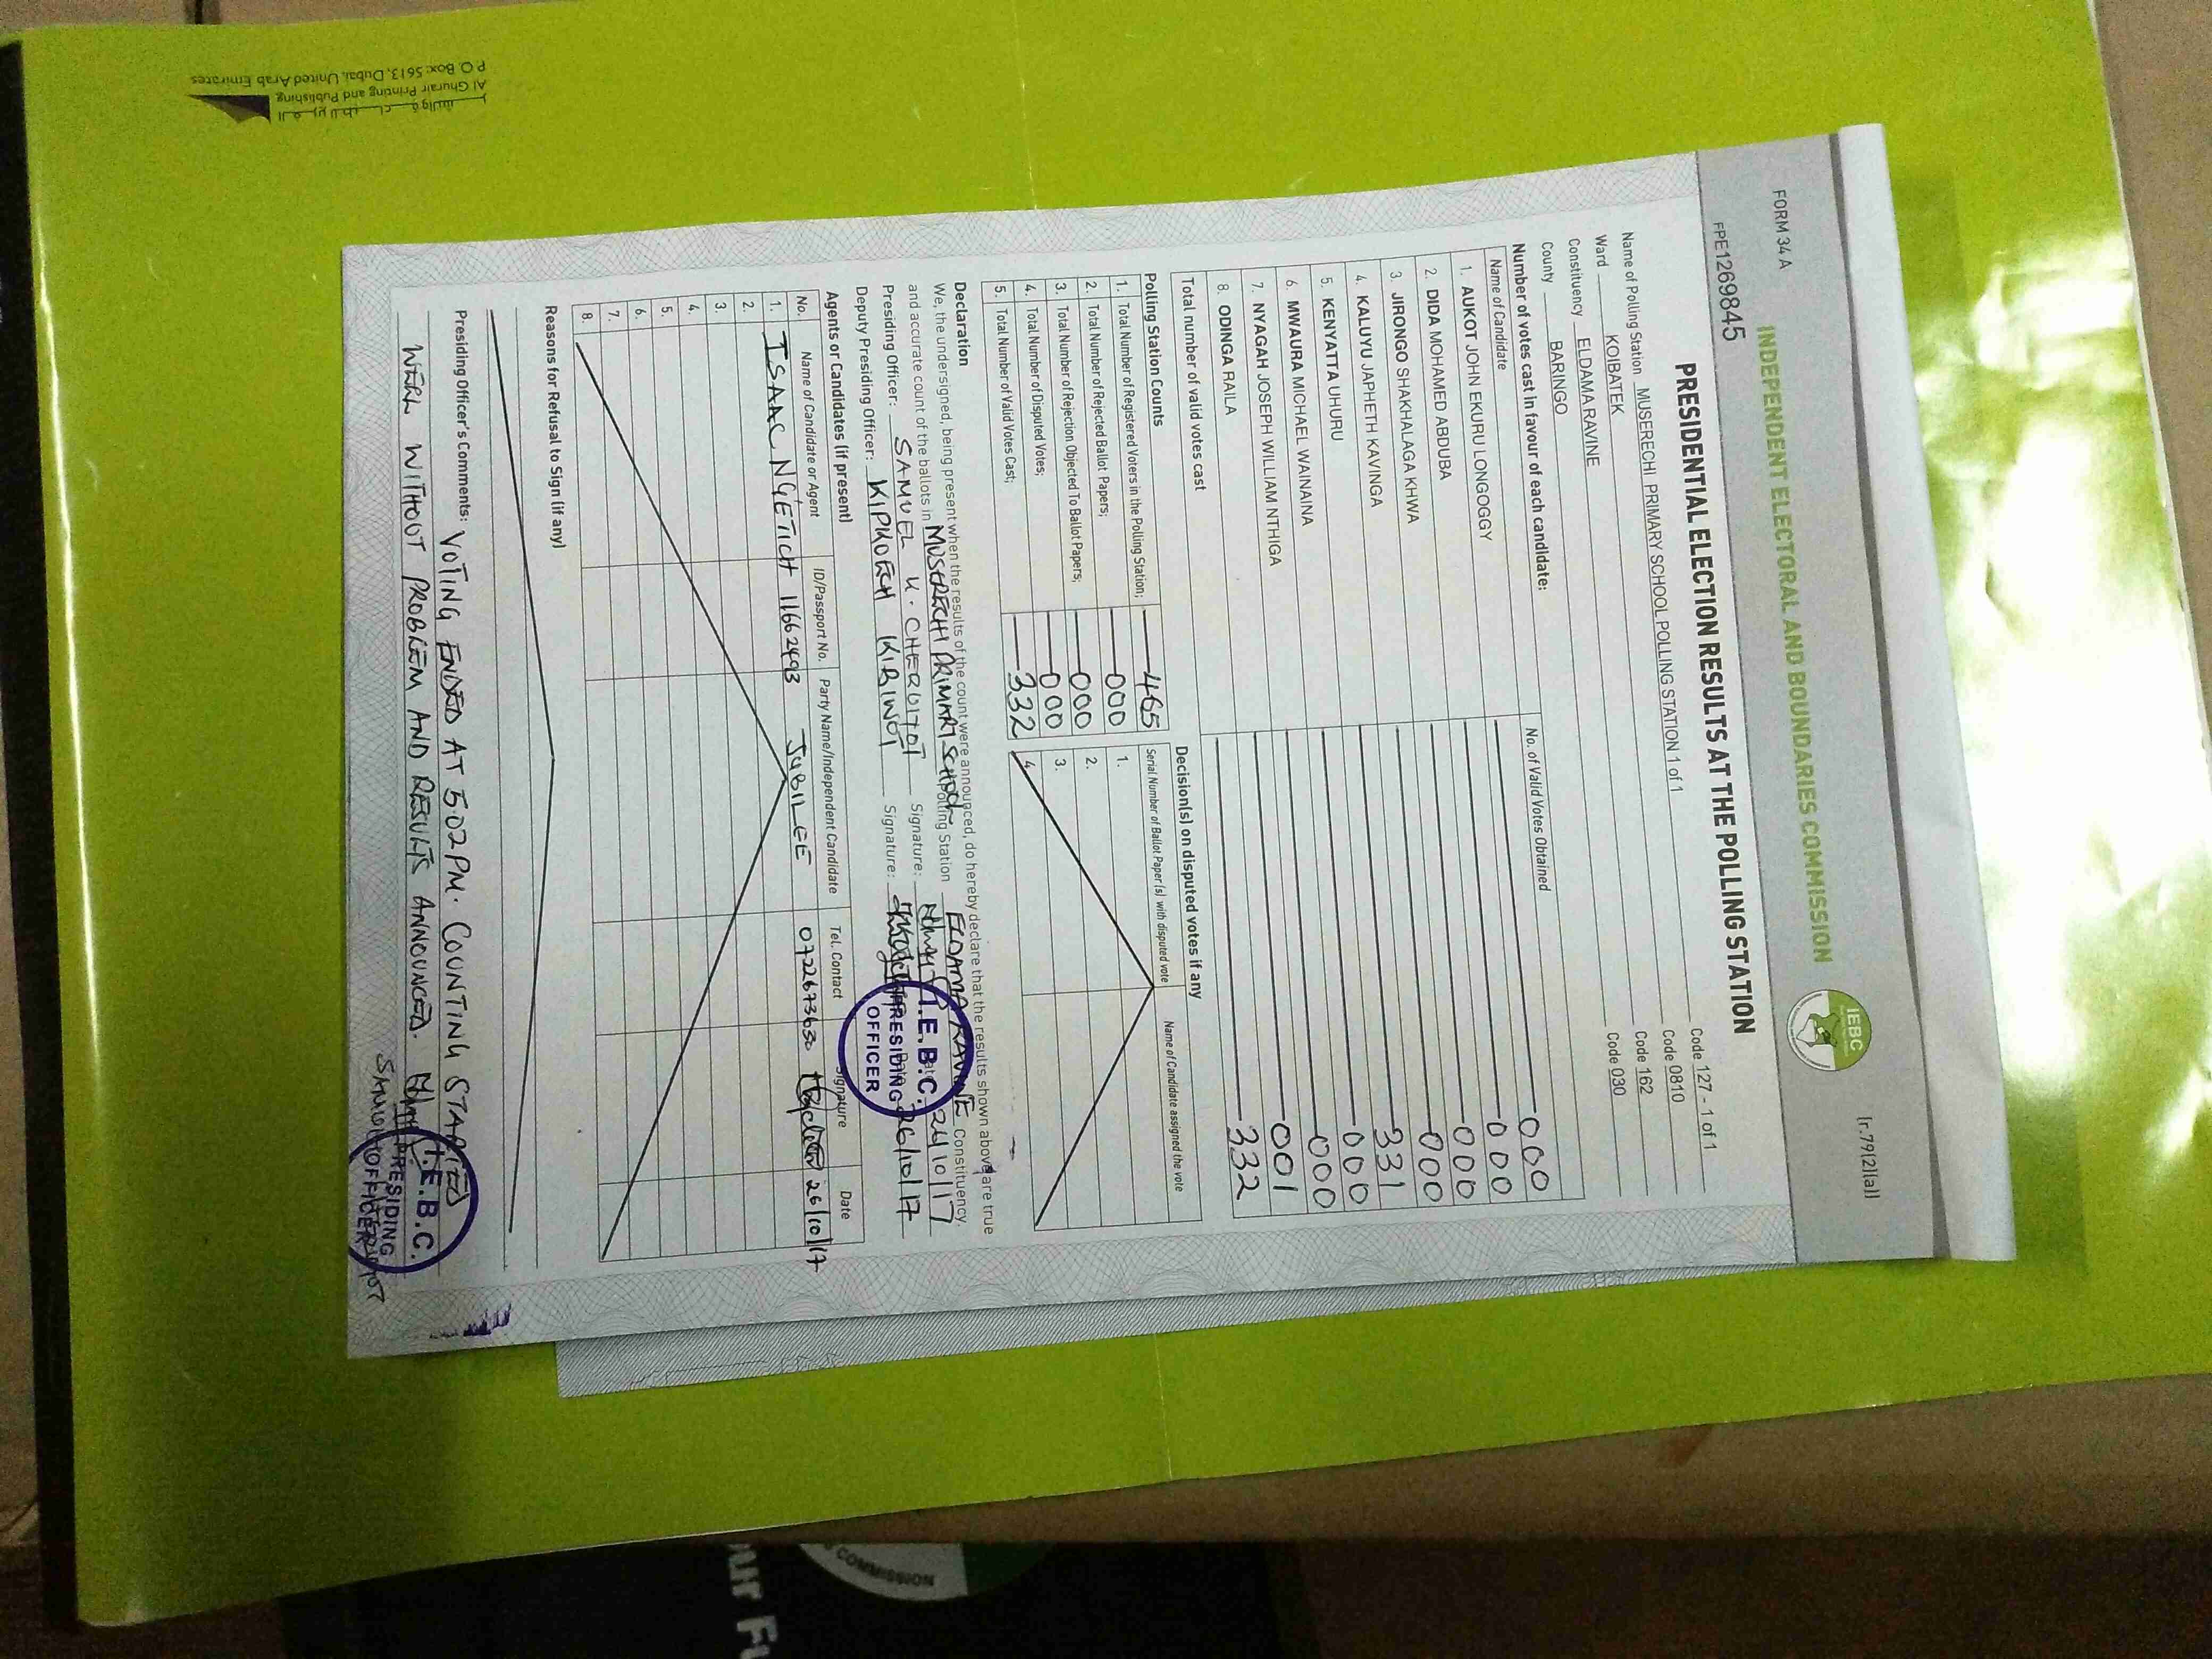 FORM 34 A
[r.79(2)(a)]
INDEPENDENT ELECTORAL AND BOUNDARIES COMMISSION
IEBC
FPE1269845
PRESIDENTIAL ELECTION RESULTS AT THE POLLING STATION
Name of Polling Station MUSERECHI PRIMARY SCHOOL POLLING STATION 1 of 1 Code 127 - 1 of 1
Ward KOIBATEK Code 0810
Constituency ELDAMA RAVINE Code 162
County BARINGO Code 030
Number of votes cast in favour of each candidate:
Name of Candidate No. of Valid Votes Obtained
1. AUKOT JOHN EKURU LONGOGGY 000
2. DIDA MOHAMED ABDUBA 000
3. JIRONGO SHAKHALAGA KHWA 000
4. KALUYU JAPHETH KAVINGA 000
5. KENYATTA UHURU 331
6. MWAURA MICHAEL WAINAINA 000
7. NYAGAH JOSEPH WILLIAM NTHIGA 000
8. ODINGA RAILA 001
Total number of valid votes cast 332
Polling Station Counts
1. Total Number of Registered Voters in the Polling Station; 465
2. Total Number of Rejected Ballot Papers; 000
3. Total Number of Rejection Objected To Ballot Papers; 000
4. Total Number of Disputed Votes; 000
5. Total Number of Valid Votes Cast; 332
Decision(s) on disputed votes if any
Serial Number of Ballot Paper (s) with disputed vote Name of Candidate assigned the vote
1.
2.
3.
4.
Declaration
We, the undersigned, being present when the results of the count were announced, do hereby declare that the results shown above are true
and accurate count of the ballots in MUSERECHI PRIMARY SCHOOL Polling Station ELDAMA RAVINE Constituency.
Presiding Officer: SAMUEL K. CHERUIYOT Signature: Date 26/10/17
Deputy Presiding Officer: KIPKOECH KIBIWOT Signature: Date 26/10/17
I.E.B.C.
PRESIDING
OFFICER
Agents or Candidates (if present)
No. Name of Candidate or Agent ID/Passport No. Party Name/Independent Candidate Tel. Contact Signature Date
1. ISAAC NG'ETICH 11662493 JUBILEE 0722673630 26/10/17
2.
3.
4.
5.
6.
7.
8.
Reasons for Refusal to Sign (if any)
Presiding Officer's Comments: VOTING ENDED AT 502PM. COUNTING STARTED
WELL WITHOUT PROBLEM AND RESULTS ANNOUNCED.
I.E.B.C.
PRESIDING
OFFICER
Al Ghurair Printing and Publishing
P.O. Box: 5613, Dubai, United Arab Emirates
COMMISSION